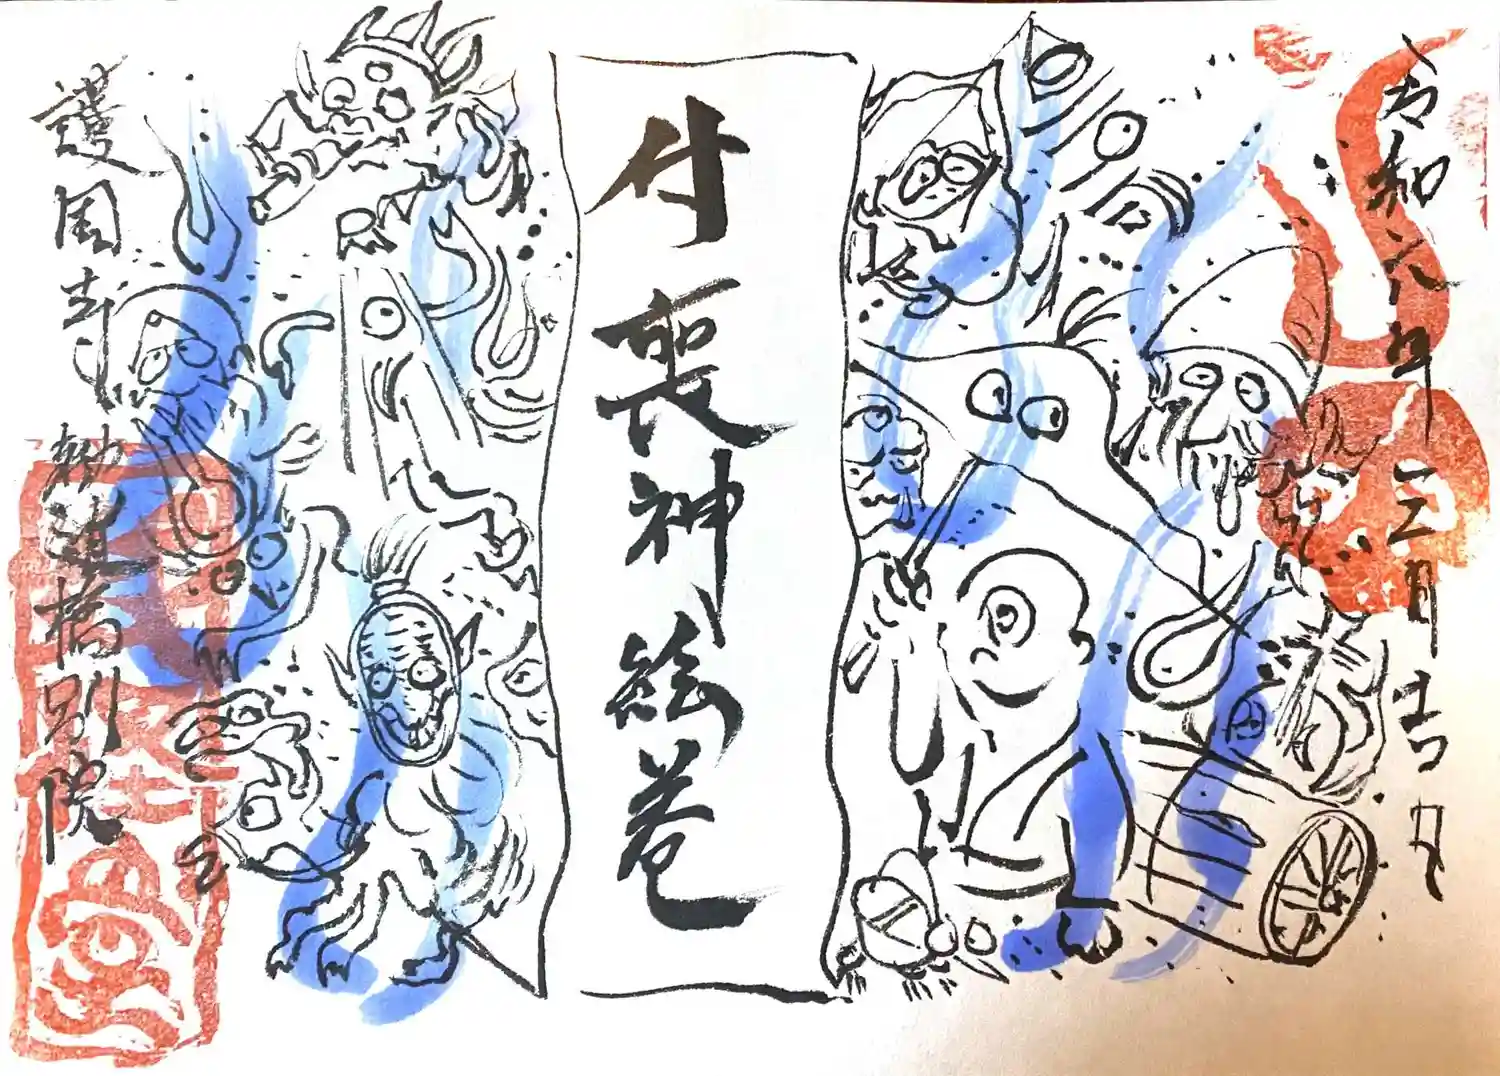 令和六年三月吉日
付喪神絵巻
護国寺 道橋別院